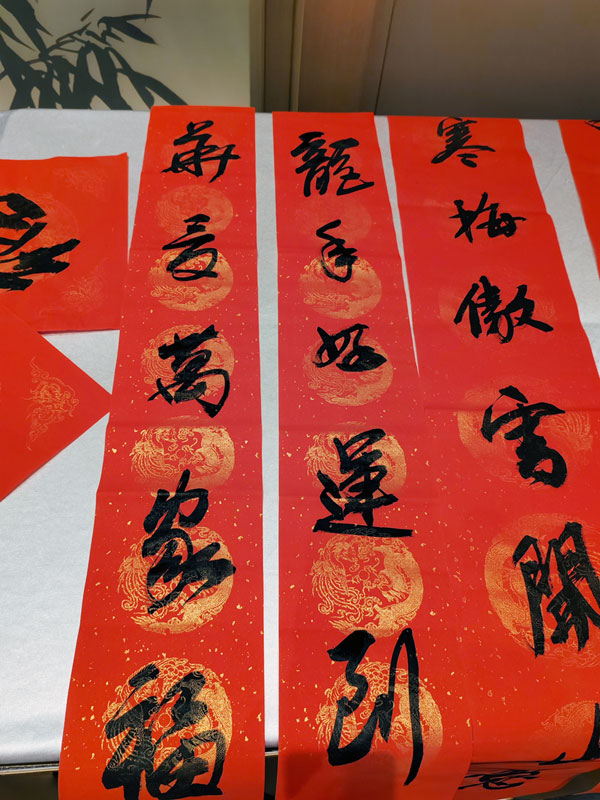 寒梅傲雪開
龍年好運到
華夏萬家福